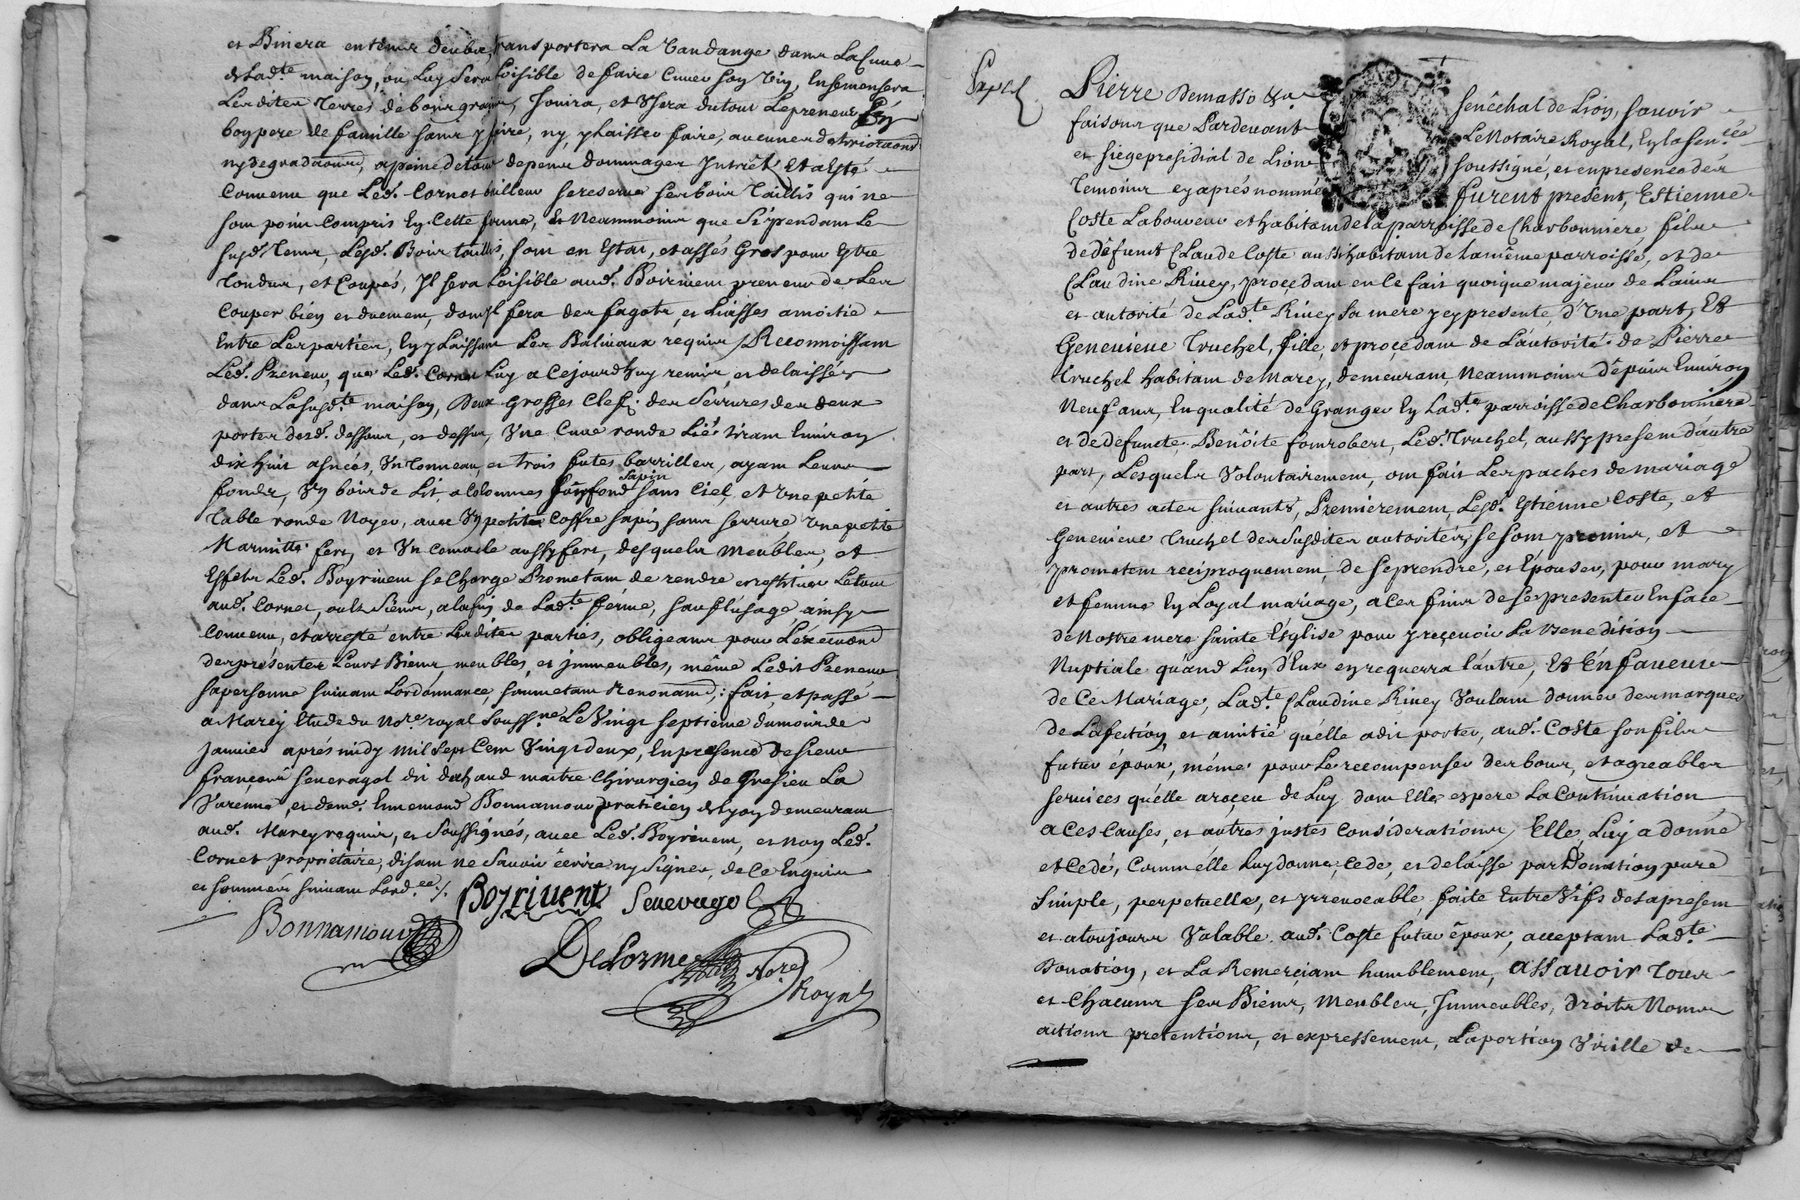 et Binera en tems deubs, transportera La Vandange dans La Cuve
de Lad.te maison, ou Luy Sera Loisible de faire Cuver son Vin, Ensemensera
Lesdites Terres de bons grains, Jouira, et Usera du tout Le preneur En
bon pere de famille sans y faire, ny, y Laisser faire, aucunes deteriorations
ny degradations, a peine de tous depens dommages Intrêts Et a Esté
Convenu que Led. Cornet bailleur se reserve ses bois Taillis qui ne
sont point Compris En Cette ferme, Et Neammoins que Si pendant Le
susd. tems, Lesd. Bois taillis, sont en Estat, et assés Gros pour Estre
Tondus, et Coupés, Il sera Loisible aud. Boirivent preneur de Les
Couper bien et duement, dont il fera des fagots, et Liasses a moitié
Entre Les parties, En y Laissant Les Baliveaux requis / Reconnoissant
Led. Preneur, que Led. Cornet Luy a Cejourd'huy remis, et delaissés
dans La susd.te maison, Deux Grosses Clefs des Serrures des deux
portes desd. dessous, et dessus, Une Cuve ronde Liée tirant Environ
dix huit asnées, Un tonneau et trois futes barrilles, ayant Leurs
fonds, Un bois de Lit a Colonnes fonfond Sapin sans Ciel, et Une petite
Table ronde Noyer, avec Un petit Coffre sapin sans serrure Une petite
Marmitte fert, et Un couvacle aussy fert, desquels Meubles, et
Effets Led. Boyrivent se Charge Prometant de rendre et restituer Le tout
aud. Cornet, ou Es Siens, a la fin de Lad.te ferme, sauf L'usage, ainsy
Convenu, et arresté entre Lesdites parties, obligeant pour L'execution
des présentes Leurs Biens meubles, et immeubles, même Ledit Preneur
sa personne suivant Lordonnance, soumetant Renonant; fait, et passé
a Marcy Etude du No.re royal Souss.né Le Vingt septieme du mois de
Janvier après midy Mil Sept Cent Vingt deux, En presence de Sieur
François Senevagol dit dechaud maitre Chirurgien de Gresieu La
Varenne, et dem. Ennemond Bonnamour praticien de Lyon demeurant
aud. Marcy requis, et Soussignés, avec Led. Boyrivent, et non Led.
Cornet proprietaire, disant ne Savoir écrire ny Signer, de Ce Enquis
et sommés suivant Lord.ee /.
Boyrivent Senevagol
Bonnamour
DeLorme No.re
Royal
Exp.é
Pierre Demasso &a
Senêchal de Lion, Savoir
faisons que Pardevant
Le Notaire Royal, En la Sen.cée
et siege presidial de Lion
soussigné, et en presence des
Temoins cy après nommés
furent present, Estienne
Coste Laboureur et habitant de la parroisse de Charbonniere fils
de défunt Claude Coste aussi habitant de la même parroisse, et de
Claudine Rivey, procedant en Ce fait quoique majeur de L'avis
et autorité de Lad.te Rivey Sa mere y cy presente, d'Une part, Et
Genevieve Truchel, fille, et procedant de L'autorité de Pierre
Truchel habitant de Marcy, demeurant, Neammoins dépuis Environ
Neuf ans, En qualité de Granger En Lad.te parroisse de Charbonniere
et de defuncte Benoite fonrobert, Led. Truchel, aussy present d'autre
part, Lesquels Volontairement, ont fait Les paches de mariage
et autres actes suivants, Premierement, Lesd. Estienne Coste, et
Genevieve Truchel des susdites autorités, se sont promis, et
promettent reciproquement, de se prendre, et Epouser, pour mary
et femme En Loyal mariage, a ces fins de se presenter En face
de Nostre mere Sainte Eglise pour y reçevoir La Benediction
Nuptiale quand L'un d'Eux en requerra L'autre, Et En faveur
de Ce Mariage, Lad.te Claudine Rivey Voulant donner des marques
de L'afection, et amitié qu'elle a dit porter, aud. Coste son fils
futur époux, même pour Le recompenser des bons, et agreables
services qu'elle a reçeu de Luy dont Elle espere La Continuation
a Ces Causes, et autres justes Considerations, Elle, Luy a donné
et Cedé, Comm'elle Luy donne, Cede, et delaisse par Donation pure
Simple, perpetuelle, et Irrevocable, faite Entre Vifs des a present
et a toujours Valable aud. Coste futur époux, acceptant Lad.te
Donation, et La Remerciant humblement, Assavoir Tous
et Chacuns ses Biens, Meubles, Immeubles, Droits Noms
actions pretentions, et expressement, La portion Virille de